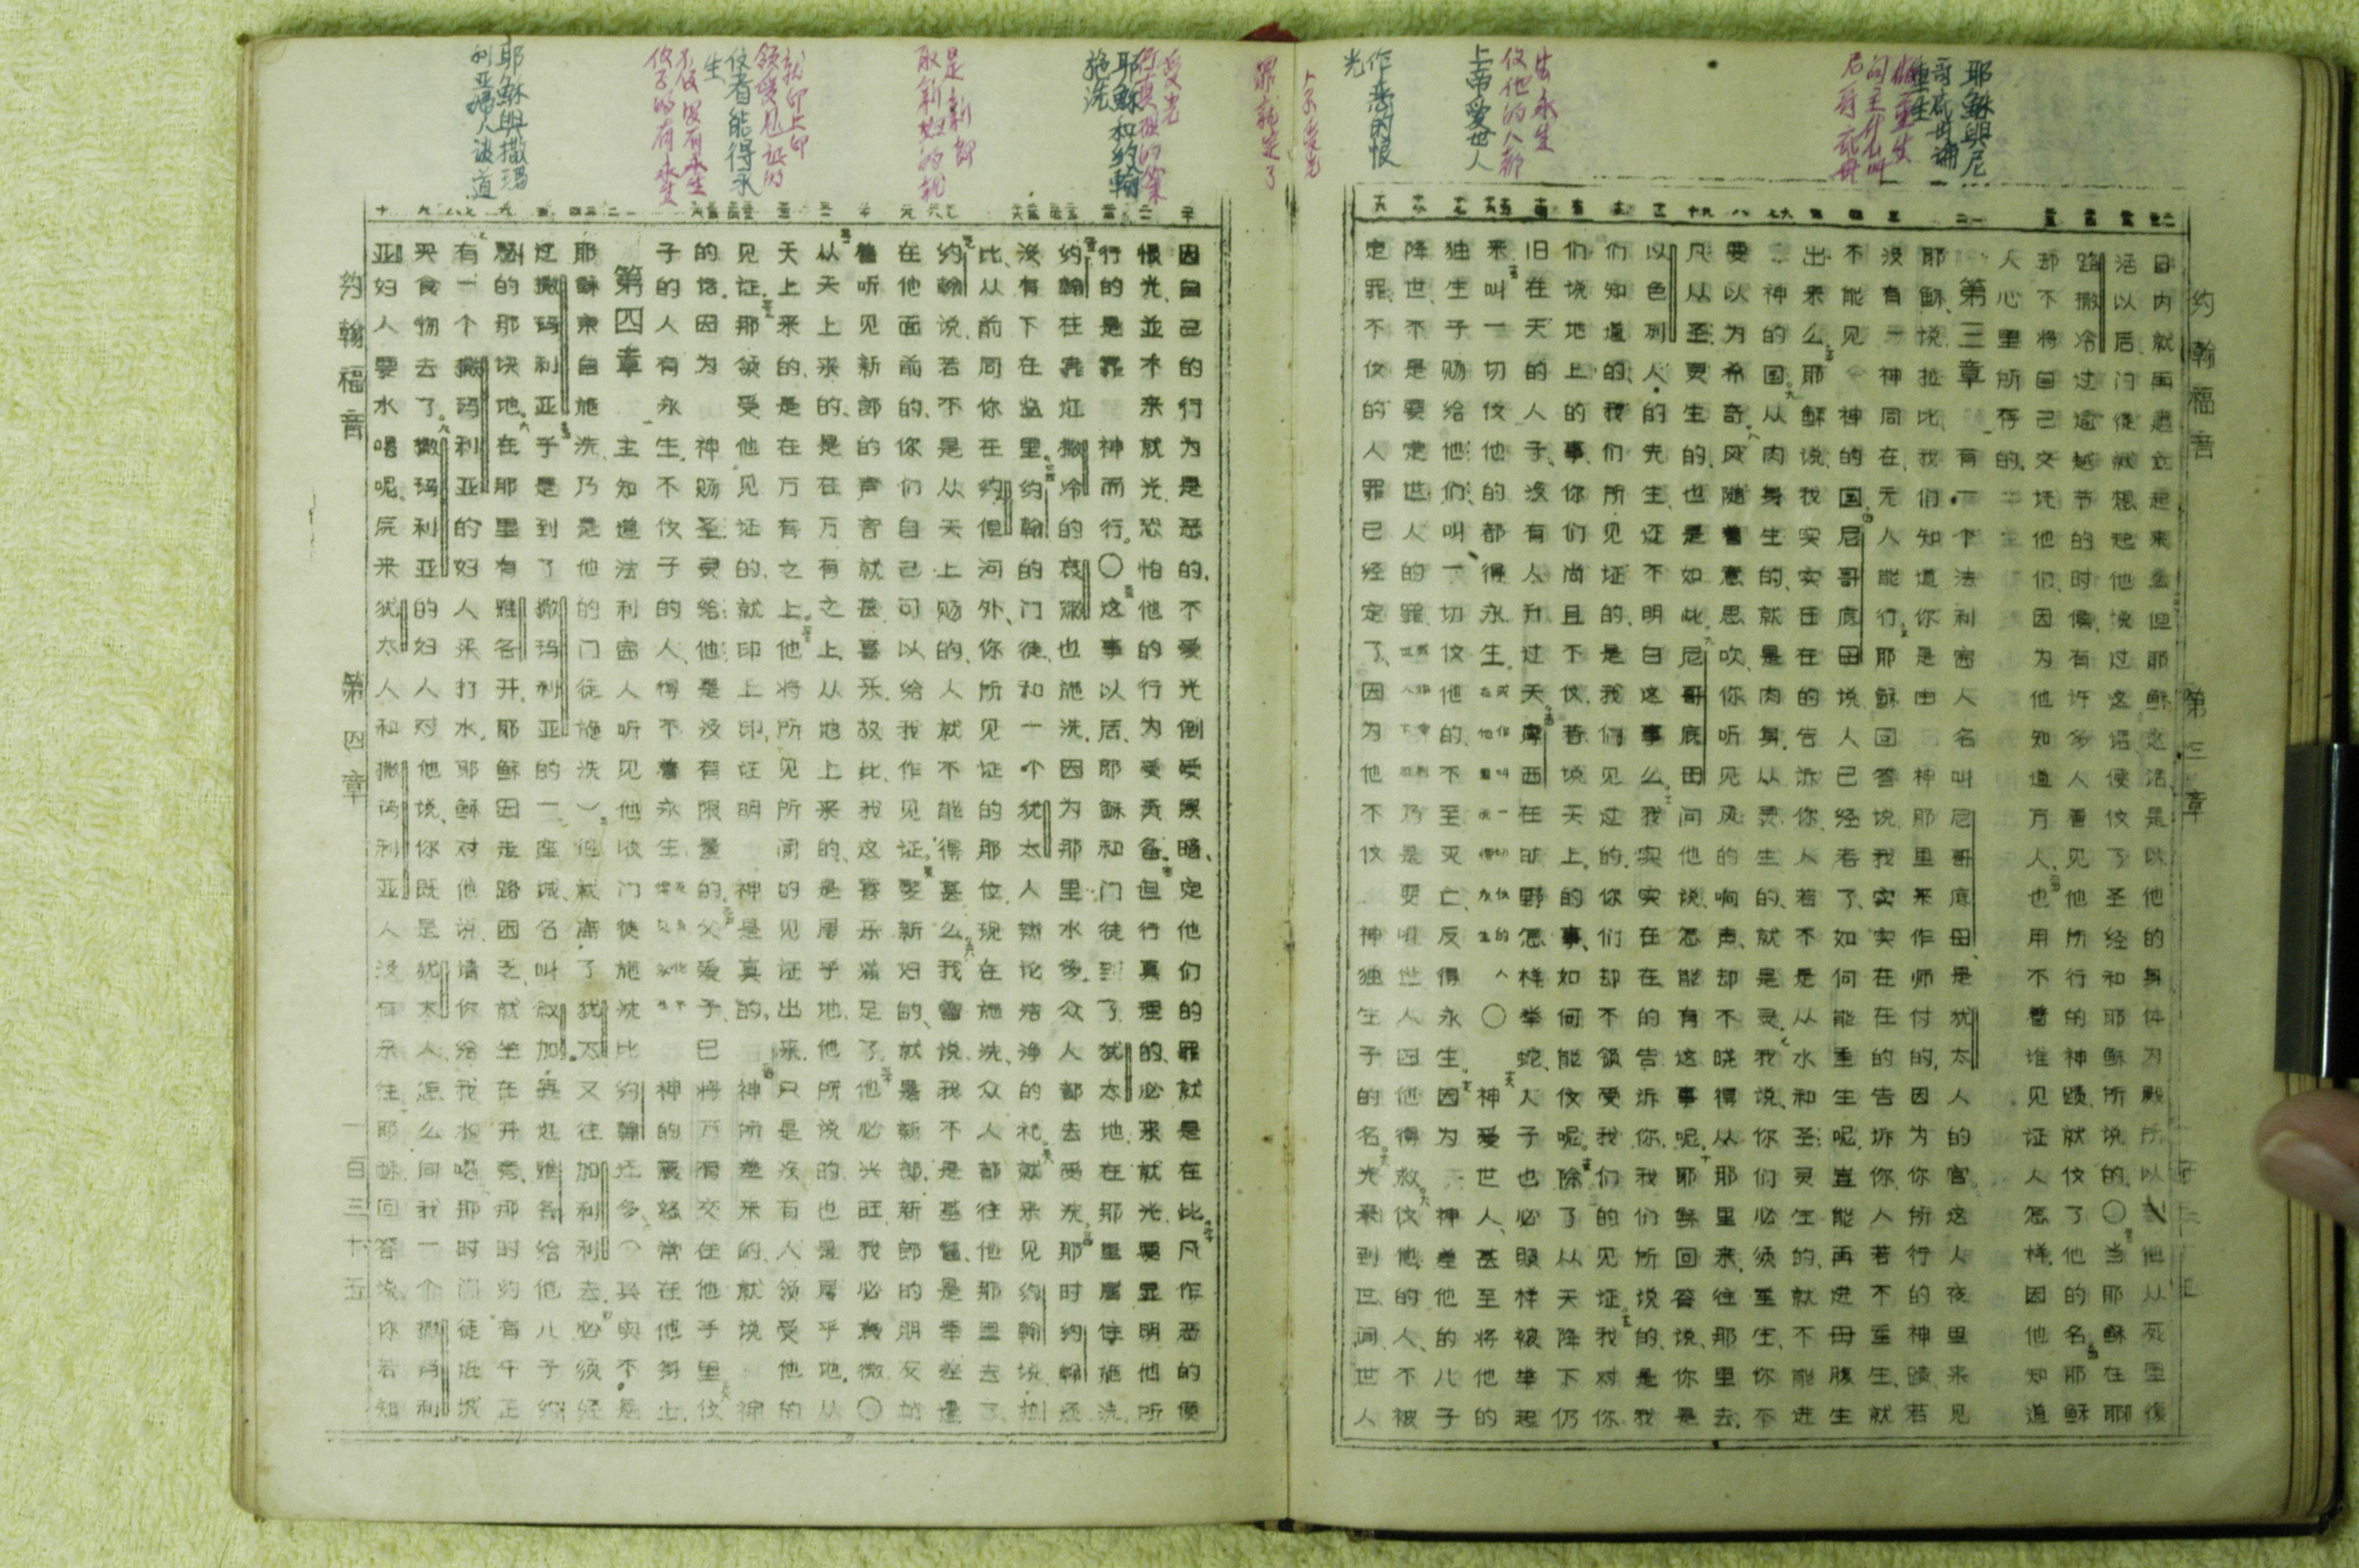 耶稣與尼
哥底母誦
重生
上帝爱世人
信他的人都
出永生
作恶的恨
光
约翰福音 第三章
日内就再建立起来么但耶稣这话是以他的身体为殿所以到他从死里復
活以后、门徒就想起他说过这话便信了圣经和耶稣所说的。○当耶稣在耶
路撒冷过逾越节的时候有许多人看见他所行的神蹟就信了他的名耶稣
却不将自己交託他们因为他知道万人、也用不着谁见证人怎样、因他知道
人心里所存的
第三章 有一个法利赛人名叫尼哥底母是犹太人的官这人夜里来见
耶稣、说拉比、我们知道你是由神那里来作师付的因为你所行的神蹟若
没有神同在、无人能行、耶稣回答说我实实在在的告诉你人若不重生就
不能见神的国尼哥底母说人已经老了如何能重生呢豈能再进母腹生
出来么耶稣说我实实在在的告诉你人若不是从水和圣灵生的、就不能进
神的国从肉身生的就是肉身从灵生的、就是灵我说你们必须重生你不
要以为希奇风随着意思吹、你听见风的响声、却不晓得从那里来、往那里去、
凡从圣灵生的、也是如此尼哥底母问他说怎能有这事呢耶稣回答说你是
以色列人的先生还不明白这事么我实实在在的告诉你我们所说的是我
们知道的、我们所见证的、是我们见过的、你们却不领受我们的见证我对你
们说地上的事、你们尚且不信若说天上的事、如何能信呢除了从天降下仍
旧在天的人子、没有人升过天摩西在旷野怎样举蛇、人子也必照样被举起
来叫一切信他的都得永生 ○神爱世人、甚至将他的
独生子赐给他们、叫一切信他的、不至灭亡、反得永生。因为 神差他的儿子
降世、不是要定世人的罪 乃是要世人因他得救信他的人不被
定罪、不信的人罪已经定了、因为他不信 神独生子的名光来到世间世人
耶稣和约翰
施洗
是新郎
取新妇的就
就印上印
领受见证的
信者能得永
生
不信没有永生
信子的有永生
耶稣與撒瑪
利亚婦人谈道
因自己的行为是恶的、不爱光倒爱黑暗、定他们的罪就是在比凡作恶的便
恨光、並不来就光恐怕他的行为受责备但行真理的、必来就光、要显明他所
行的是靠神而行。○这事以后、耶稣和门徒到了犹太地、在那里居住施洗
约翰在靠近撒冷的哀嫩也施洗、因为那里水多、众人都去受洗那时约翰还
没有下在监里约翰的门徒、和一个犹太人辩论洁净的礼就来见约翰说拉
比、从前同你在约但河外、你所见证的那位现在施洗、众人都往他那里去了
约翰说、若不是从天上赐的、人就不能得甚么我曾说、我不是基督是奉差遣
在他面前的、你们自己可以给我作见证娶新妇的就是新郎、新郎的朋友站
着听见新郎的声音就甚喜乐、故此我这喜乐满足了他必兴旺我必衰微○
从天上来的、是在万有之上、从地上来的、是属乎地、他所说的也是属乎地、从
天上来的、是在万有之上他将所见所闻的见证出来、只是没有人领受他的
见证那领受他见证的、就印上印、证明神是真的、神所差来的、就说 神
的话、因为神赐圣灵给他、是没有限量的父爱子、已将万所有交在他手里信
子的人有永生、不信子的人、得不着永生 神的震怒常在他身上
第四章 主知道法利赛人听见他收门徒施洗比约翰还多(其实不是
耶稣亲自施洗、乃是他的门徒施洗)他就离了犹太又往加利利去必须经
过撒玛利亚于是到了撒玛利亚的一座城名叫叙加靠近雅各给他儿子约
瑟的那块地在那里有雅各井、耶稣因走路困乏就坐在井旁、那时约有午正
有一个撒玛利亚的妇人来打水。耶稣对他说请你给我水喝那时门徒进城
买食物去了撒玛利亚的妇人对他说、你既是犹太人怎么向我一个撒玛利
亚妇人要水喝呢原来犹太人和撒玛利亚人没有来往耶稣回答说你若知
约翰福音 第四章 一百三十五